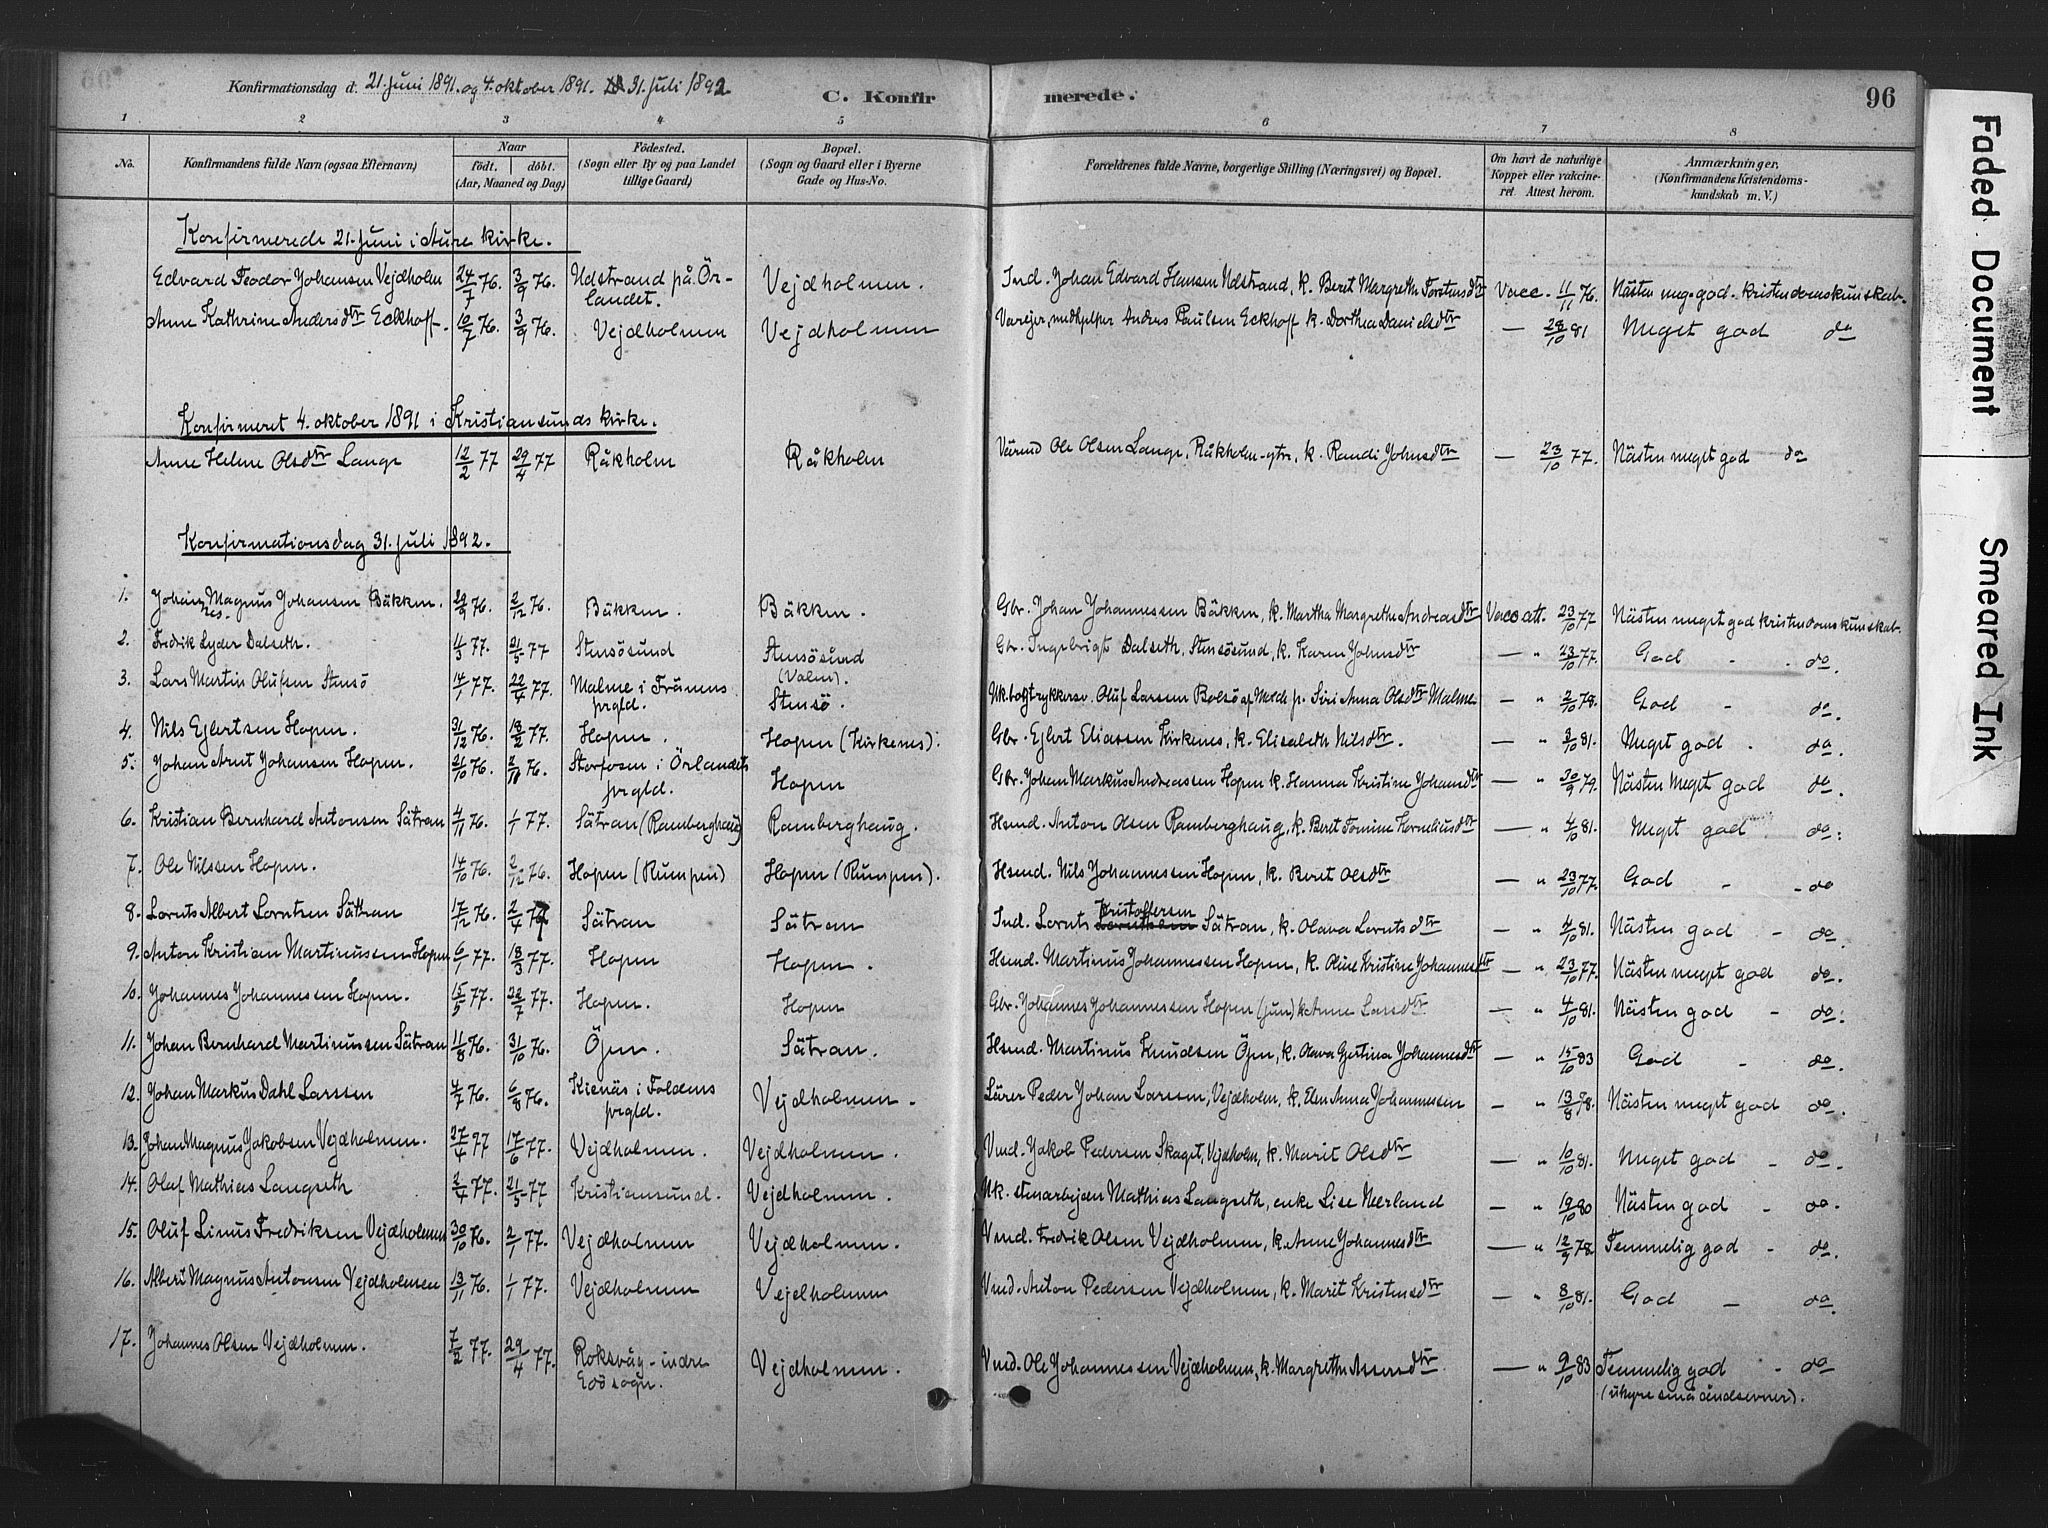 Konfirmationsdag d. 21. juni 1891. og 4. oktober 1891. 31. juli 1892
C. Konfirmerede.
96
1 2 3 4 5 6 7 8
No.
Konfirmandens fulde Navn (ogsaa Efternavn)
Naar
født. døbt.
(Aar, Maaned og Dag)
Fødested.
(Sogn eller By og paa Landet
tillige Gaard)
Bopæl.
(Sogn og Gaard eller i Byerne
Gade og Hus-No.
Forældrenes fulde Navne, borgerlige Stilling (Næringsvei) og Bopæl.
Om havt de naturlige
Kopper eller vakcine-
ret. Attest herom.
Anmærkninger.
(Konfirmandens Kristendoms-
kundskab m. V.)
Konfirmerede 21. juni i Aure kirke.
Edvard Teodor Johansen Vejdholm 24/7 76. 3/9 76. Udstrand på Ör-landet. Vejdholmen. Ind. Johan Edvard Hansen Udstrand, k. Beret Margrethe Torstensdtr Vacc. 11/11 76. Nästen meg. god. kristendomskunskab.
Anne Kathrine Andersdtr Eckhoff. 10/7 76. 3/9 76. Vejdholmen Vejdholmen Anders Paulsen Eckhoff k. Dorthea Danielsdtr — 28/10 81 Meget god do
Konfirmeret 4. oktober 1891 i Kristiansunds kirke.
Anne Helene Olsdtr Lange 12/2 77 29/4 77 Råkholm Råkholm Ole Olsen Lange, Råkholm-ytre, k. Randi Johnsdtr — 23/10 77. Nästen meget god do
Konfirmationsdag 31. juli 1892.
1. Johannes Magnus Johansen Bäkken. 29/9 76. 2/12 76. Bäkken. Bäkken. Gbr. Johan Johannessen Bäkken, k. Martha Margrethe Andreasdtr Vacc att. 23/10 77 Nästen meget god kristendomskunskab.
2. Fredrik Lyder Dalseth. 4/3 77. 21/5 77 Stensösund Stensösund (Valen). Gbr. Ingebrigt Dalseth, Stensösund, k. Karen Johnsdtr — " 23/10 77. God - - do.
3. Lars Martin Olufsen Stensö 14/1 77. 22/4 77. Malme i Fränens prgld. Stensö. Uk. bogtrykkersv. Oluf Larsen Bolsö af Molde p. Siri Anna Olsdtr Malme — " 2/10 78. God - do.
4. Nils Ejlertsen Hopen. 31/12 76. 18/2 77. Hopen. Hopen (Kirkenes). Gbr. Ejlert Eliassen Kirkenes, k. Elisabeth Nilsdtr. — " 3/10 81. Meget god. do.
5. Johan Arnt Johansen Hopen. 21/10 76. 76. Storfosen i Örlandets prgld. Hopen Gbr. Johan Markus Andreassen Hopen k. Hanna Kristine Johansdtr — " 30/9 79. Nästen meget god do.
6. Kristian Bernhard Antonsen Sätran 4/11 76. 1/1 77. Sätran (Ramberghaug) Ramberghaug. Hsmd. Anton Olsen Ramberghaug, k. Beret Tomine Korneliusdtr — " 4/10 81. Meget god. do.
7. Ole Nilssen Hopen. 14/10 76. 2/12 76. Hopen (Rumpen) Hopen (Rumpen). Hsmd. Nils Johannessen Hopen, k. Beret Olsdtr — " 23/10 77. God - - do
8. Lornts Albert Lorntsen Sätran 17/12 76. 2/4 77 Sätran Sätran Ind. Lornts Kristoffersen Sätran, k. Olava Lorntsdtr — " 4/10 81. Nästen god - do.
9. Anton Kristian Martinussen Hopen 6/1 77. 18/3 77. Hopen Hopen. Hsmd. Martinus Johannessen Hopen, k. Oline Kristine Johannesdtr — " 23/10 77. Nästen meget god do.
10. Johannes Johannessen Hopen. 15/5 77. 22/7 77. Hopen. Hopen Gbr. Johannes Johannessen Hopen (jun) k. Anne Larsdtr — " 4/10 81. Nästen god - do.
11. Johan Bernhard Martinussen Sätran 11/8 76. 31/10 76. Öjen. Sätran. Hsmd. Martinus Knudsen Öjen, k. Olava Gjertina Johannesdtr — " 15/10 83 God - do.
12. Johan Markus Dahl Larssen 4/7 76. 6/8 76. Kienäs i Foldens prgld. Vejdholmen. Lärer Peder Johan Larssen, Vejdholm, k. Elen Anna Johannessen — " 13/8 78. Nästen meget god do.
13. Johan Magnus Jakobsen Vejdholmen. 27/4 77 17/6 77. Vejdholmen. Vejdholmen. Vmd. Jakob Pedersen Skaget, Vejdholm, k. Marit Olsdtr — " 10/10 81. Meget god - do.
14. Olaf Mathias Langseth 2/4 77. 21/5 77 Kristiansund. Vejdholmen. Uk. stenarbejder Mathias Langseth, enke Lise Neerland — " 19/10 80 Nästen god - do.
15. Oluf Linus Fredriksen Vejdholmen 30/10 76. 2/1 77. Vejdholmen Vejdholmen. Vmd. Fredrik Olsen Vejdholmen, k. Anne Johannesdtr — " 12/9 78 Temmelig god - do.
16. Albert Magnus Antonsen Vejdholmen 13/11 76. 1/1 77. Vejdholmen Vejdholmen Vmd. Anton Pedersen Vejdholmen, k. Marit Kristensdtr — " 8/10 81. God - do.
17. Johannes Olsen Vejdholmen. 7/2 77. 29/4 77. Roksvåg - indre Edösogn. Vejdholmen Vmd. Ole Johannessen Vejdholmen, k. Margrethe Assersdtr — " 9/10 83 Temmelig god - do
(uhyre små åndsevner).
Faded Document
Smeared Ink